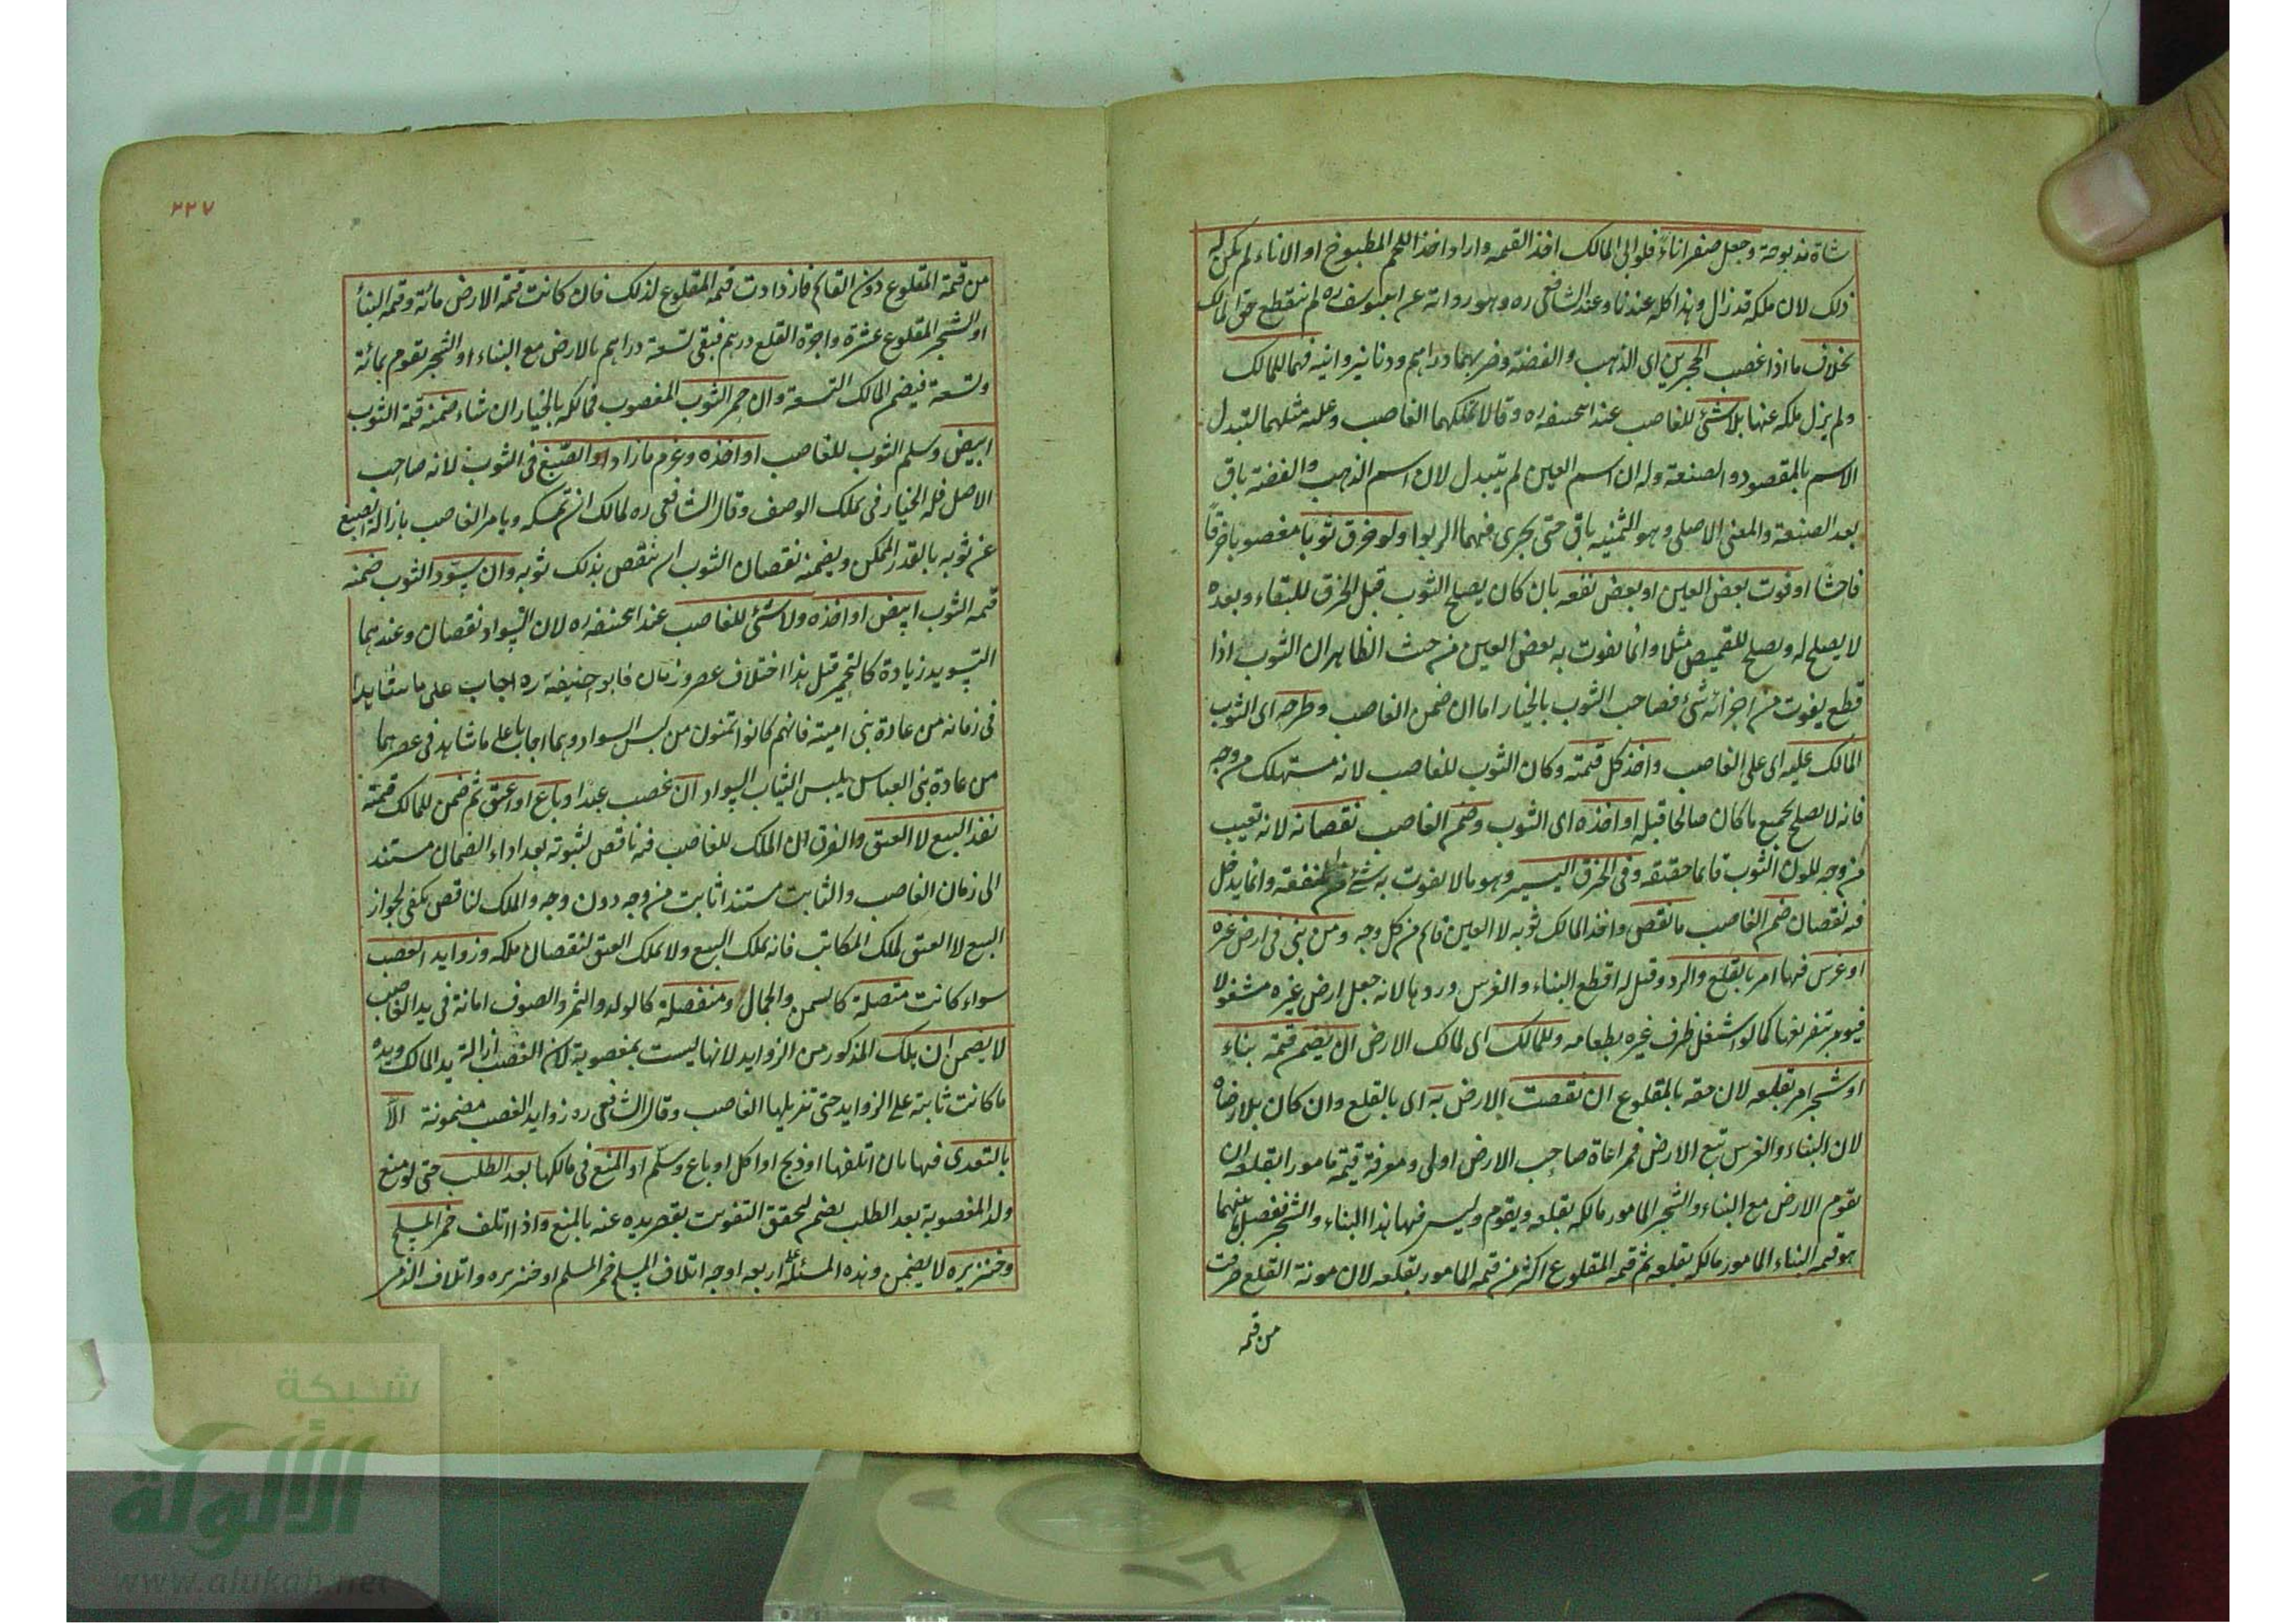 شاة مذبوحة وجعل صفرا اناء فلو ابى المالك اخذ القيمه واراد اخذ اللحم المطبوخ او الاناء لم يكن له
ذلك لان ملكه قد زال وهذا كله عندنا وعند الشافعى ره وهو رواية عن ابيوسف ره لم ينقطع حق المالك
بخلاف ما اذا غصب الحجرين اى الذهب والفضة وضربهما دراهم ودنانير وانيه فهما للمالك
ولم يزل ملكه عنها بلا شئ للغاصب عند ابيحنيفه ره وقالا يملكهما الغاصب وعليه مثلهما لتبدل
الاسم بالمقصود والصنعة وله ان اسم العين لم يتبدل لان اسم الذهب والفضة باق
بعد الصنعة والمعنى الاصلى وهو الثمنيه باق حتى يجرى فيهما الربوا ولو خرق ثوبا مغصوبا خرقاً
فاحشا او فوت بعض العين او بعض نفعه بان كان يصلح الثوب قبل الخرق للبقاء وبعده
لا يصلح له ويصلح للقميص مثلا وانما يفوت به بعض العين من حيث الظاهر ان الثوب اذا
قطع يفوت من اجزائه شئ فصاحب الثوب بالخيار اما ان ضمن الغاصب وطرحه اى الثوب
المالك عليه اى على الغاصب واخذ كل قيمته وكان الثوب للغاصب لانه مستهلك من وجه
فانه لا يصلح لجميع ما كان صالحا قبله او اخذه اى الثوب وضمن الغاصب نقصانه لانه تعيب
من وجه لكون الثوب قائما حقيقه وفى الخرق اليسير وهو ما لا يفوت به شئ من المنفعة وانما يدخل
فيه نقصان ضمن الغاصب ما نقص واخذ المالك ثوبه لا العين قائم من كل وجه ومن بنى فى ارض غيره
او غرس فيها امر بالقلع والرد وقيل له اقطع البناء والغرس وردها لانه جعل ارض غيره مشغولا
فيومر بتفريغها كما لو اشغل ظرف غيره بطعامه وللمالك اى لمالك الارض ان يضمن قيمة بناء
او شجر امر بقلعه لان حقه بالمقلوع ان نقصت الارض به اى بالقلع وان كان بلا رضاه
لان البناء والغرس تبع الارض فمراعاة صاحب الارض اولى ومعرفة قيمته مامورا بقلعه ان
يقوم الارض مع البناء والشجر المامور مالكه بقلعه ويقوم وليس فيها هذا البناء والشجر ففضل بينهما
هو قيمه البناء المامور مالكه بقلعه ثم قيمه المقلوع اكثر من قيمه المامور بقلعه لان مونة القلع صرفت
من قيمه
٢٢٧
من قيمة المقلوع دون القائم فازدادت قيمه المقلوع لذلك فان كانت قيمه الارض مائة وقيمه البناء
او الشجر المقلوع عشرة واجرة القلع درهم فبقى تسعة دراهم بالارض مع البناء او الشجر تقوم بمائة
وتسعة فيضمن المالك التسعة وان حمر الثوب المغصوب فمالكه بالخيار ان شاء ضمنه قيمة الثوب
ابيض وسلم الثوب للغاصب او اخذه وغرم ما زاد الصبغ فى الثوب لانه صاحب
الاصل فله الخيار فى تملك الوصف وقال الشافعى ره لمالك ان يمسكه ويامر الغاصب بازالة الصبغ
عن ثوبه بالقدر الممكن ويضمنه نقصان الثوب ان نقص بذلك ثوبه وان سود الثوب ضمنه
قيمه الثوب ابيض او اخذه ولا شئ للغاصب عند ابيحنيفه ره لان السواد نقصان وعندهما
التسويد زيادة كالتحمير قيل هذا اختلاف عصر وزمان فابو حنيفة ره اجاب على ما شاهد
فى زمانه من عادة بنى امية فانهم كانوا يمنعون من لبس السواد وهما اجابا على ما شاهد فى عصرهما
من عادة بنى العباس يلبس الثياب السواد ان غصب عبدا وباع او اعتق ثم ضمن للمالك قيمته
نفذ البيع لا العتق والفرق ان الملك للغاصب فيه ناقص لثبوته بعد اداء الضمان مستند
الى زمان الغاصب والثابت مستندا ثابت من وجه دون وجه والملك لناقص يكفى لجواز
البيع لا العتق لملك المكاتب فانه يملك البيع ولا يملك العتق لنقصان ملكه وزوايد الغصب
سواء كانت متصلة كالسمن والجمال ومنفصلة كالولد والثمر والصوف امانة فى يد الغاصب
لا يضمن ان هلك المذكور من الزوايد لانها ليست بمغصوبة لان الغصب ازالة يد المالك ويده
ما كانت ثابتة على الزوايد حتى تزيلها الغاصب وقال الشافعى ره زوايد الغصب مضمونة الا
بالتعدى فيها بان اتلفها او ذبح او اكل او باع وسلم او المنع فى مالكها بعد الطلب حتى لو منع
ولد المغصوبة بعد الطلب يضمن لتحقق التفويت بقصر يده عنه بالمنع واذا اتلف خمر المسلم
وخنزيره لا يضمن وهذه المسئلة على اربعه اوجه اتلاف المسلم خمر المسلم او خنزيره واتلاف الذمى
شبكة
الألوكة
www.alukah.net